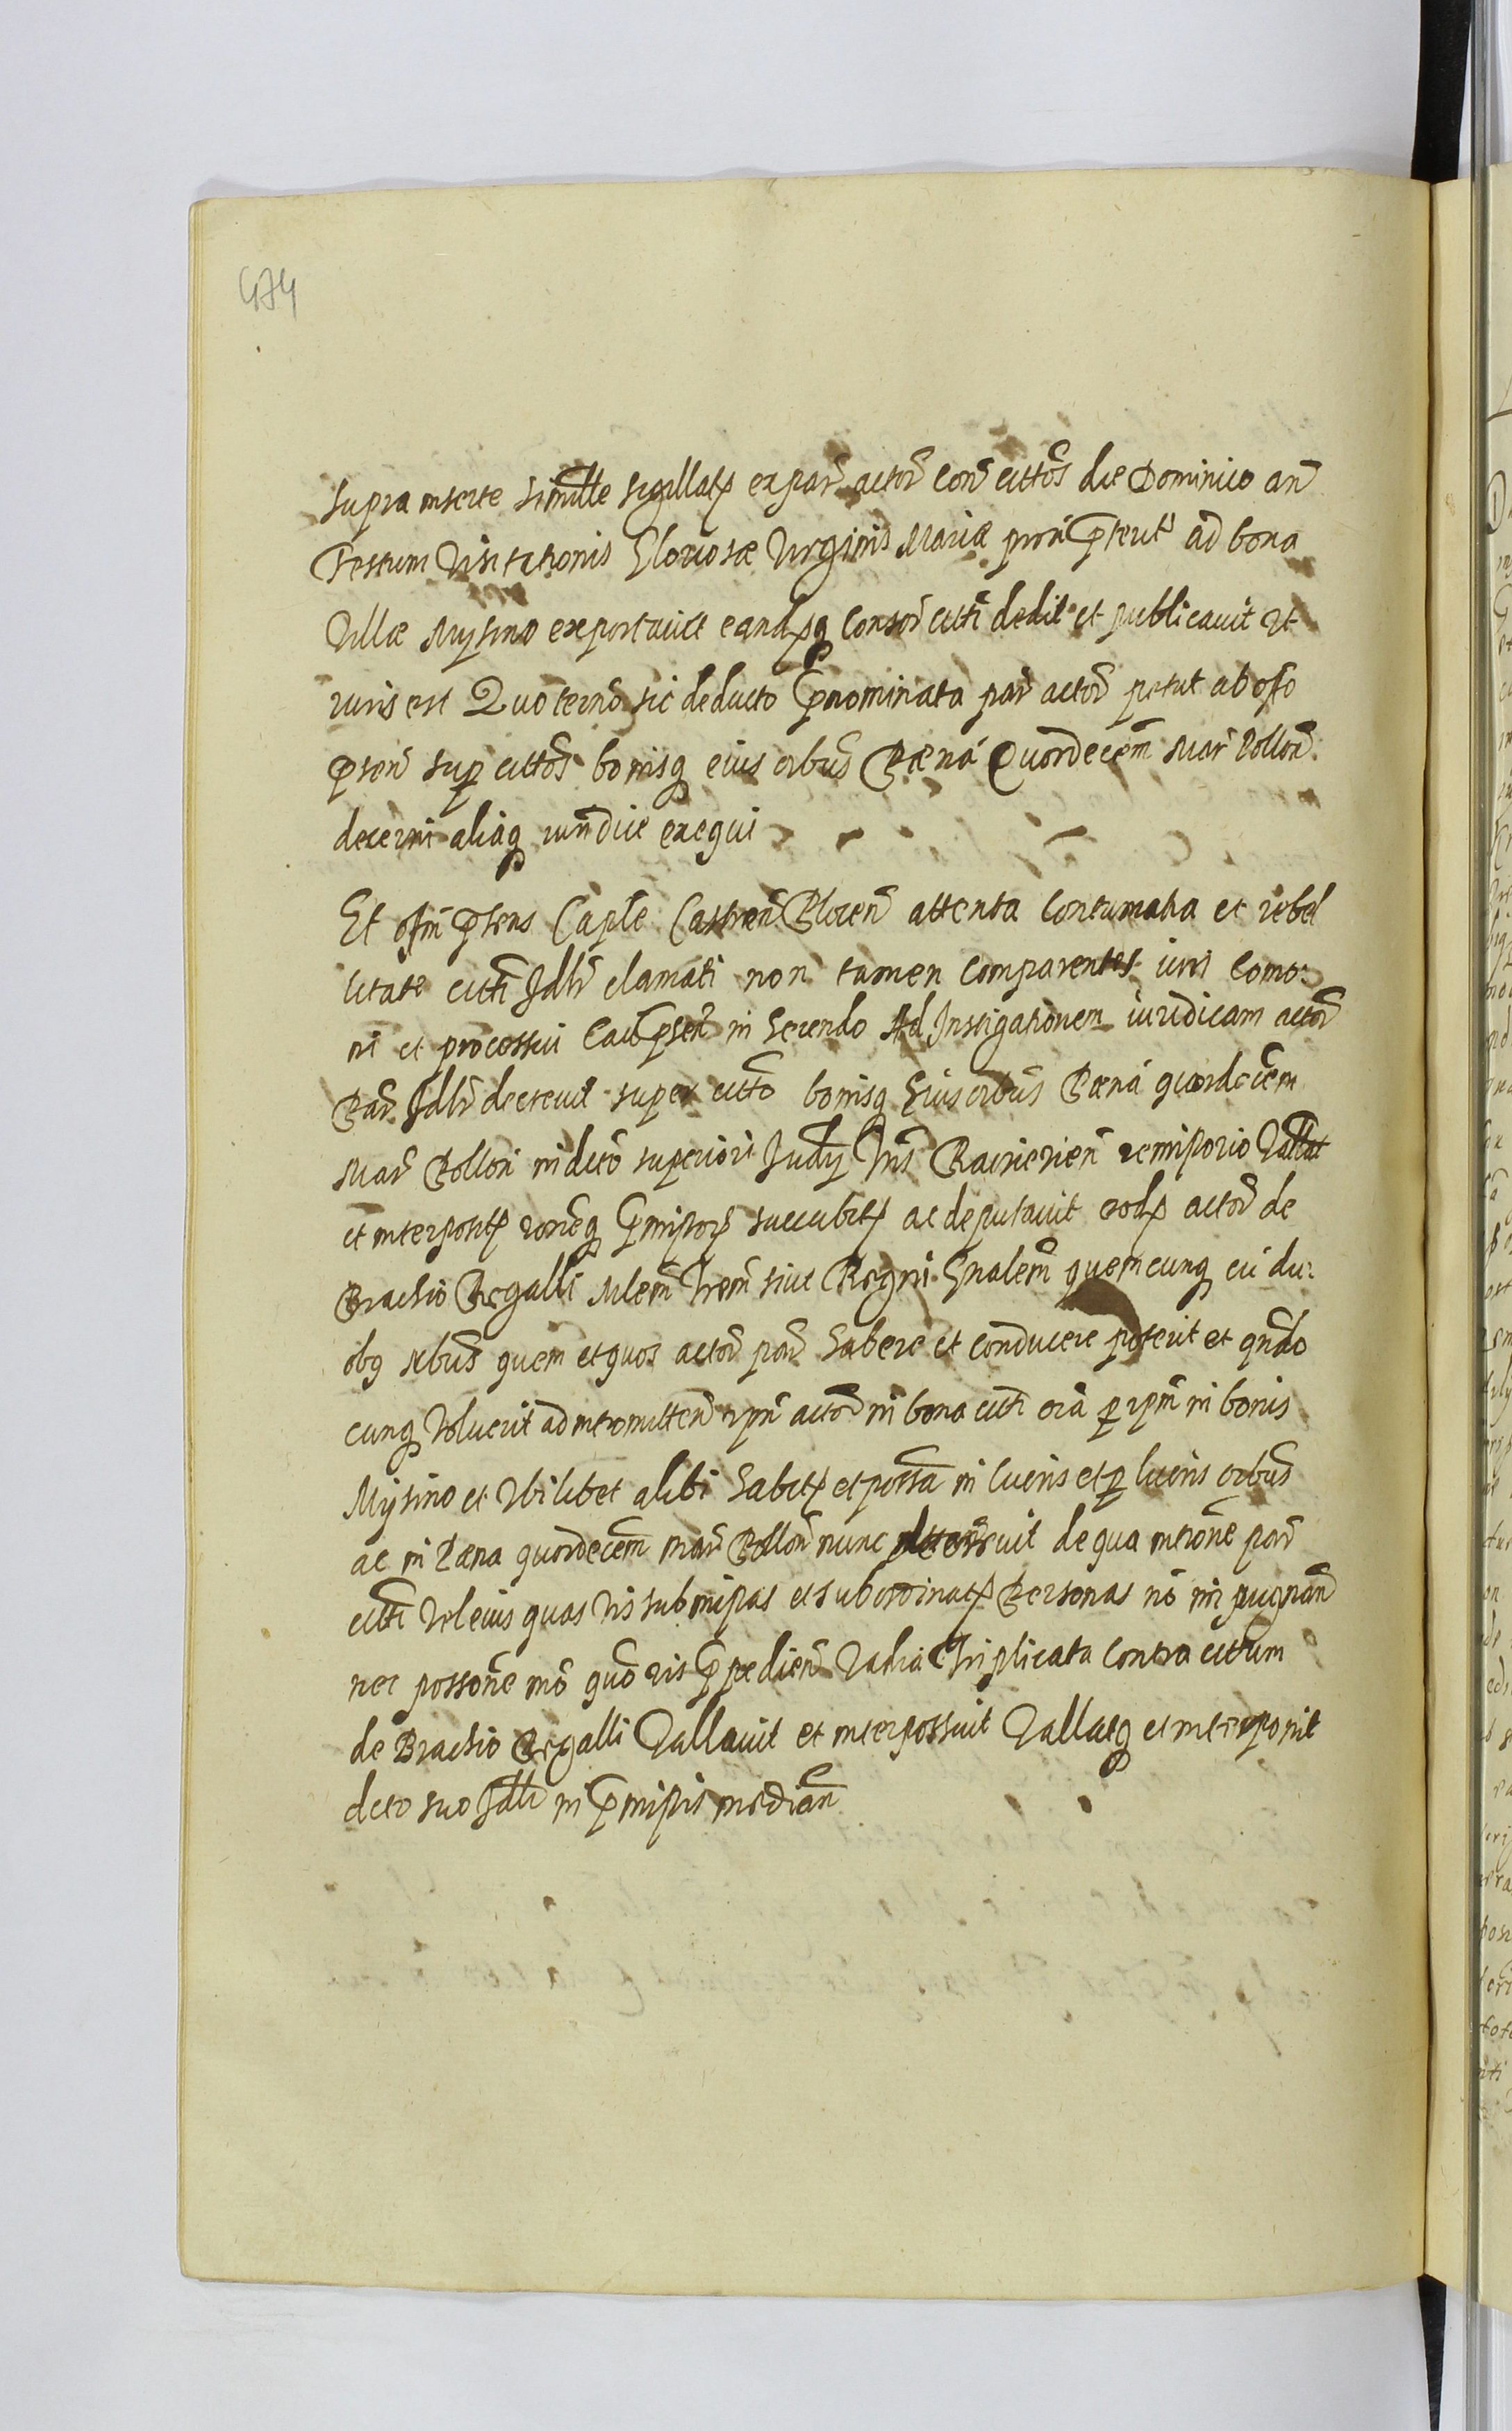 474
supra inserte simille sigillatę ex par actor con cittos die Dominico an
Festum Visitationis Gloriosæ Virginis Mariæ prox pterit ad bona
Villæ Mysino exportavit eandęq consor citti dedit et publicavit ut
iuris est Quo termo sic deducto pnominata par actor petut ab offo
psen sup cittos bonisq eius oibus Pæná Quordecem Mar Pollon
decerni aliáq iundice exequi
Et offm psens Caple Castren Plocen attenta Contumatia et rebel
litate citti Idlr clamati non tamen Comparentes iuri Como:
ni et processui Caus psen in herendo Ad Instigationem iuridicam actor
Par Idlr decrevit super citto bonisq Eius oibus Pæná quordecem
Mar Pollon in dicto superiori Judy tris Raciezien remisporio Vallat
et interpositę roneq pmissorę succubitę ac deputavit eodę actor de
Brachio Regalli Mlem trem sive Regni Gnalem quemcunq ex du:
obq rebus quem et quos actor par habere et conducere poterit et qndo
cunq Voluerit ad intromitten ipm actor in bona citti oia p ipm in bonis
Mysino et Ubilibet alibi habitę et possa in lucris et p lucris oibus
ac in Pæna quordecem mar Pollon nunc decrevit de qua intione par
citti Vel eius quas vis submissas et subordinatę Personas no impugnan
nec possone mo quo vis ppedien Vadia Triplicata Contra cittum
de Brachio Regalli Vallavit et interpossuit Vallatq et interponit
dicto suo Idlr in pmissis median